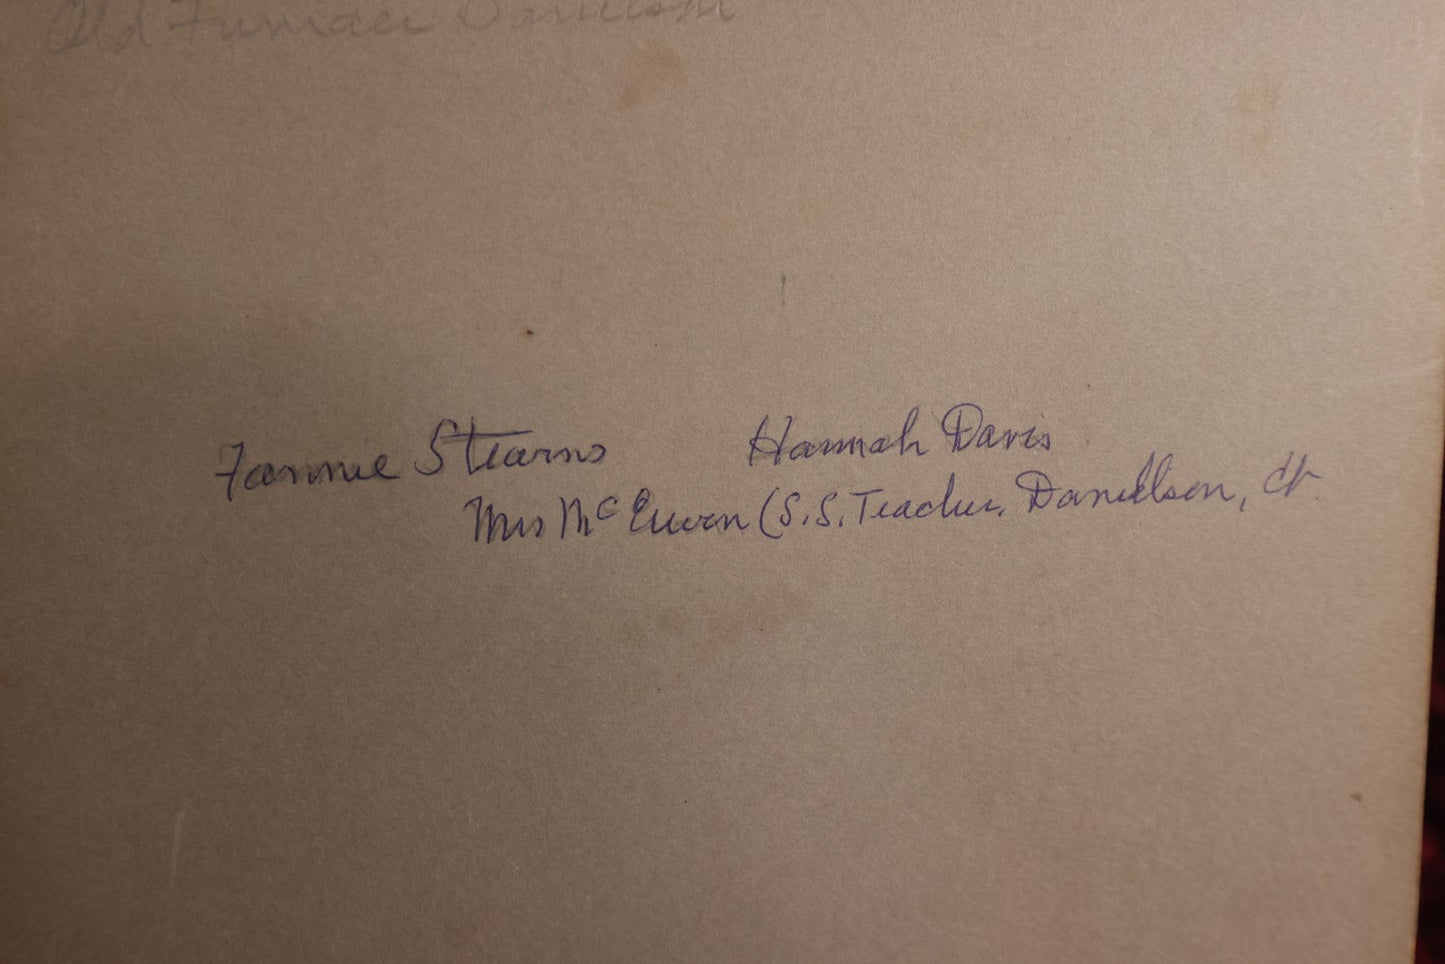 Old Furnace Danielson
Fannie Stearns Hannah Davis
Mrs McEwen (S.S. Teacher. Danielson, Ct.